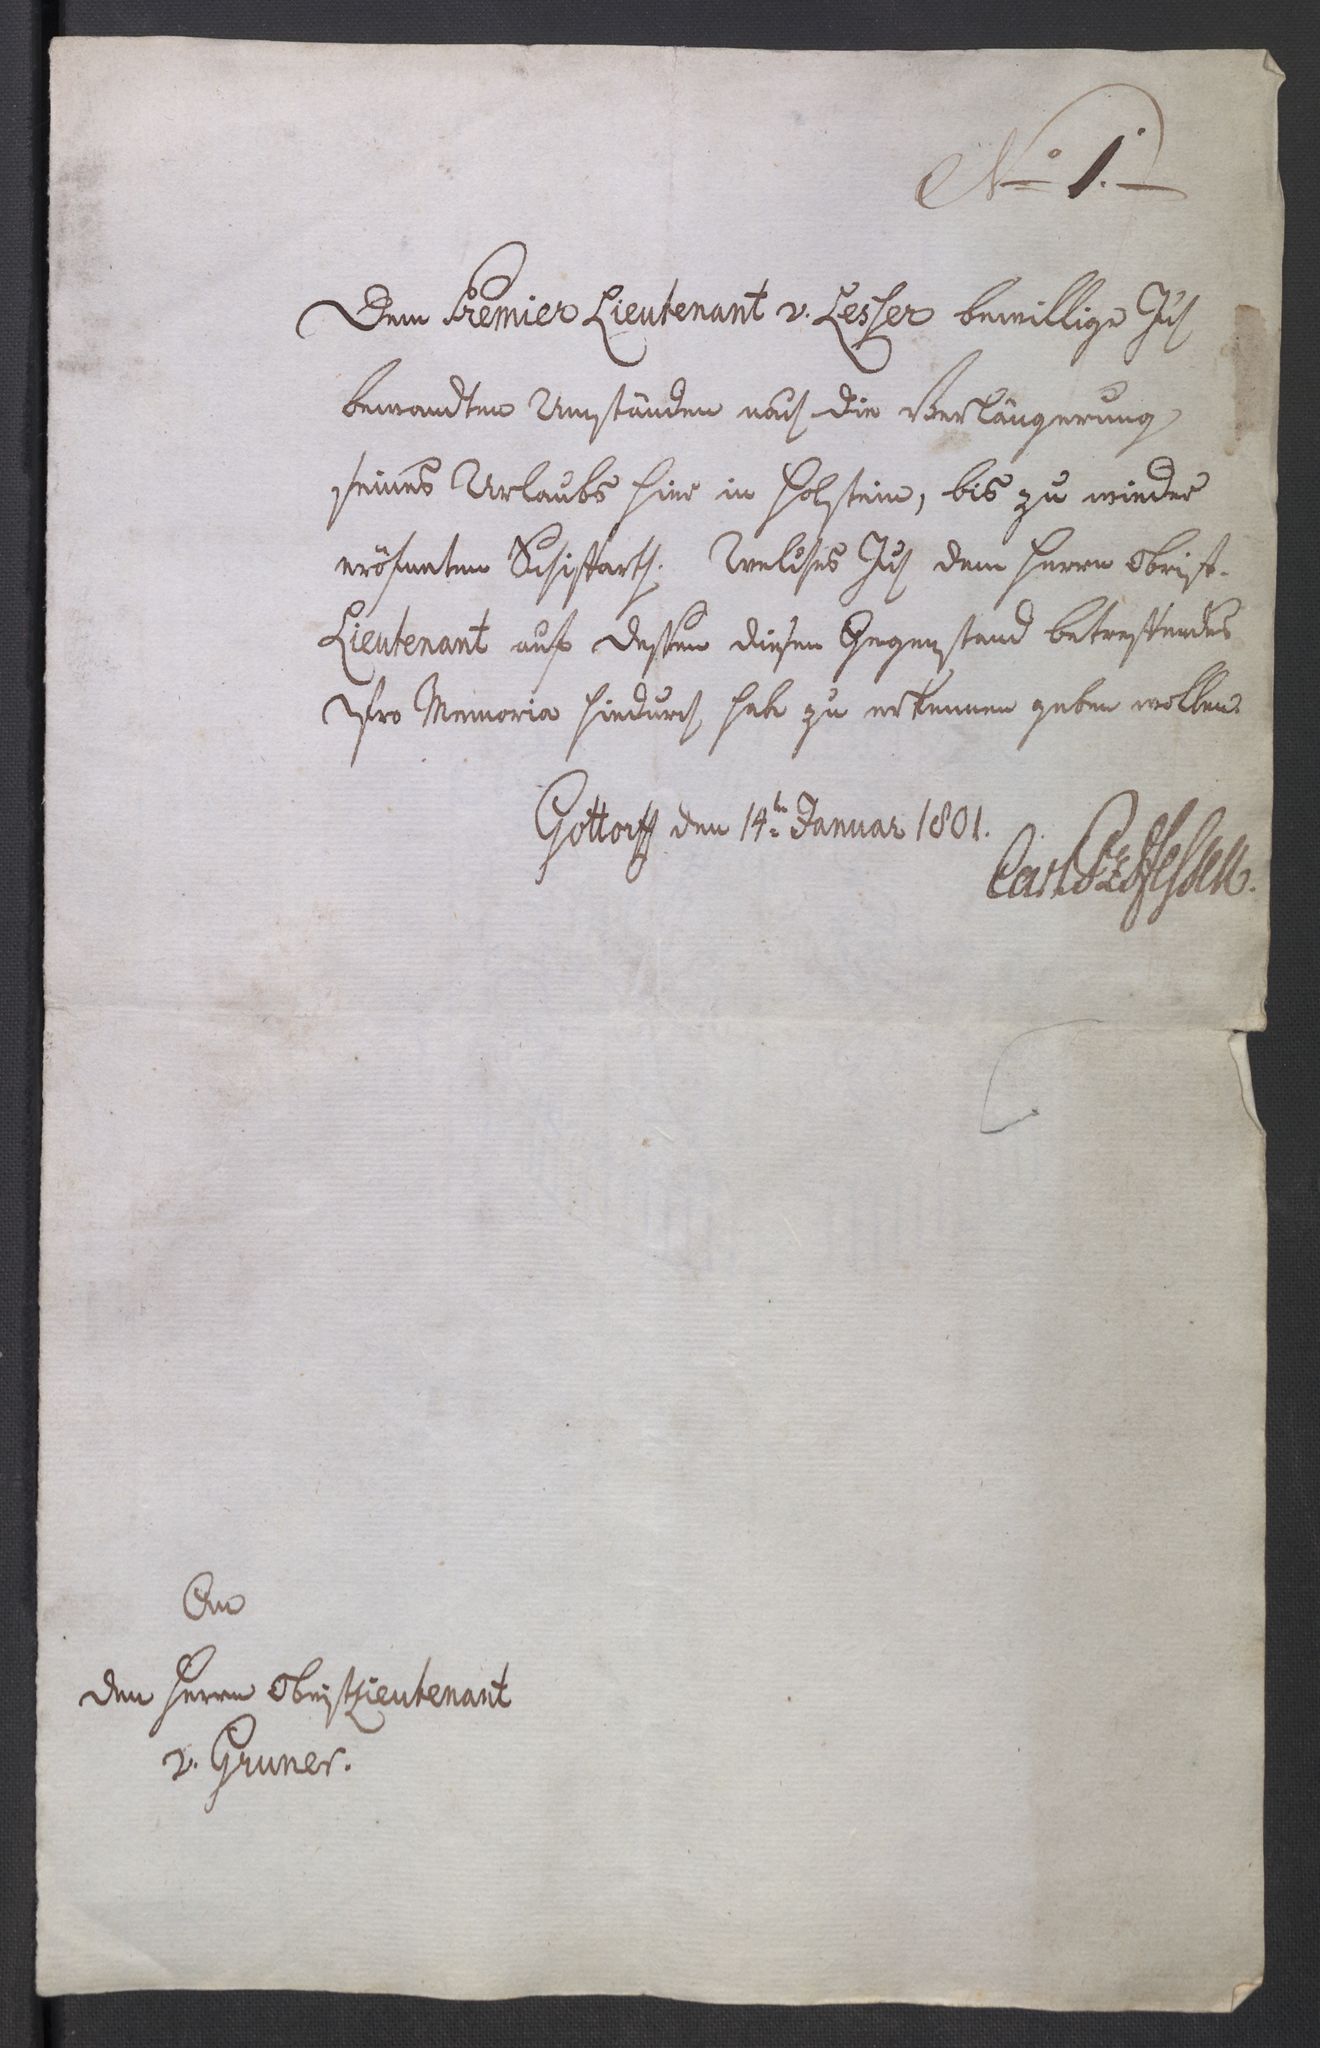 No 1.
Dem Premier Lieutenant v. Lesser bewillige Ich
bewandten Umständen nach die Verlängerung
seines Urlaubs hier in Holstein, bis zu wieder
eröfneten Schiffarth. Welches Ich dem Herrn Obrist-
Lieutenant auf dessen diesen Gegenstand betreffendes
Pro Memoria hiedurch habe zu erkennen geben wollen.
Gottorff den 14ten Januar 1801.
Carl Pr z Hessen.
An
den Herrn ObristLieutenant
v. Gruner.